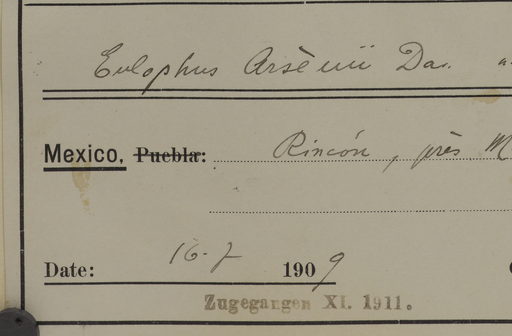 Eulophus Arsènii Da..
Mexico, Puebla: Rincón, près M
Date: 16-7 1909
Zugegangen XI. 1911.